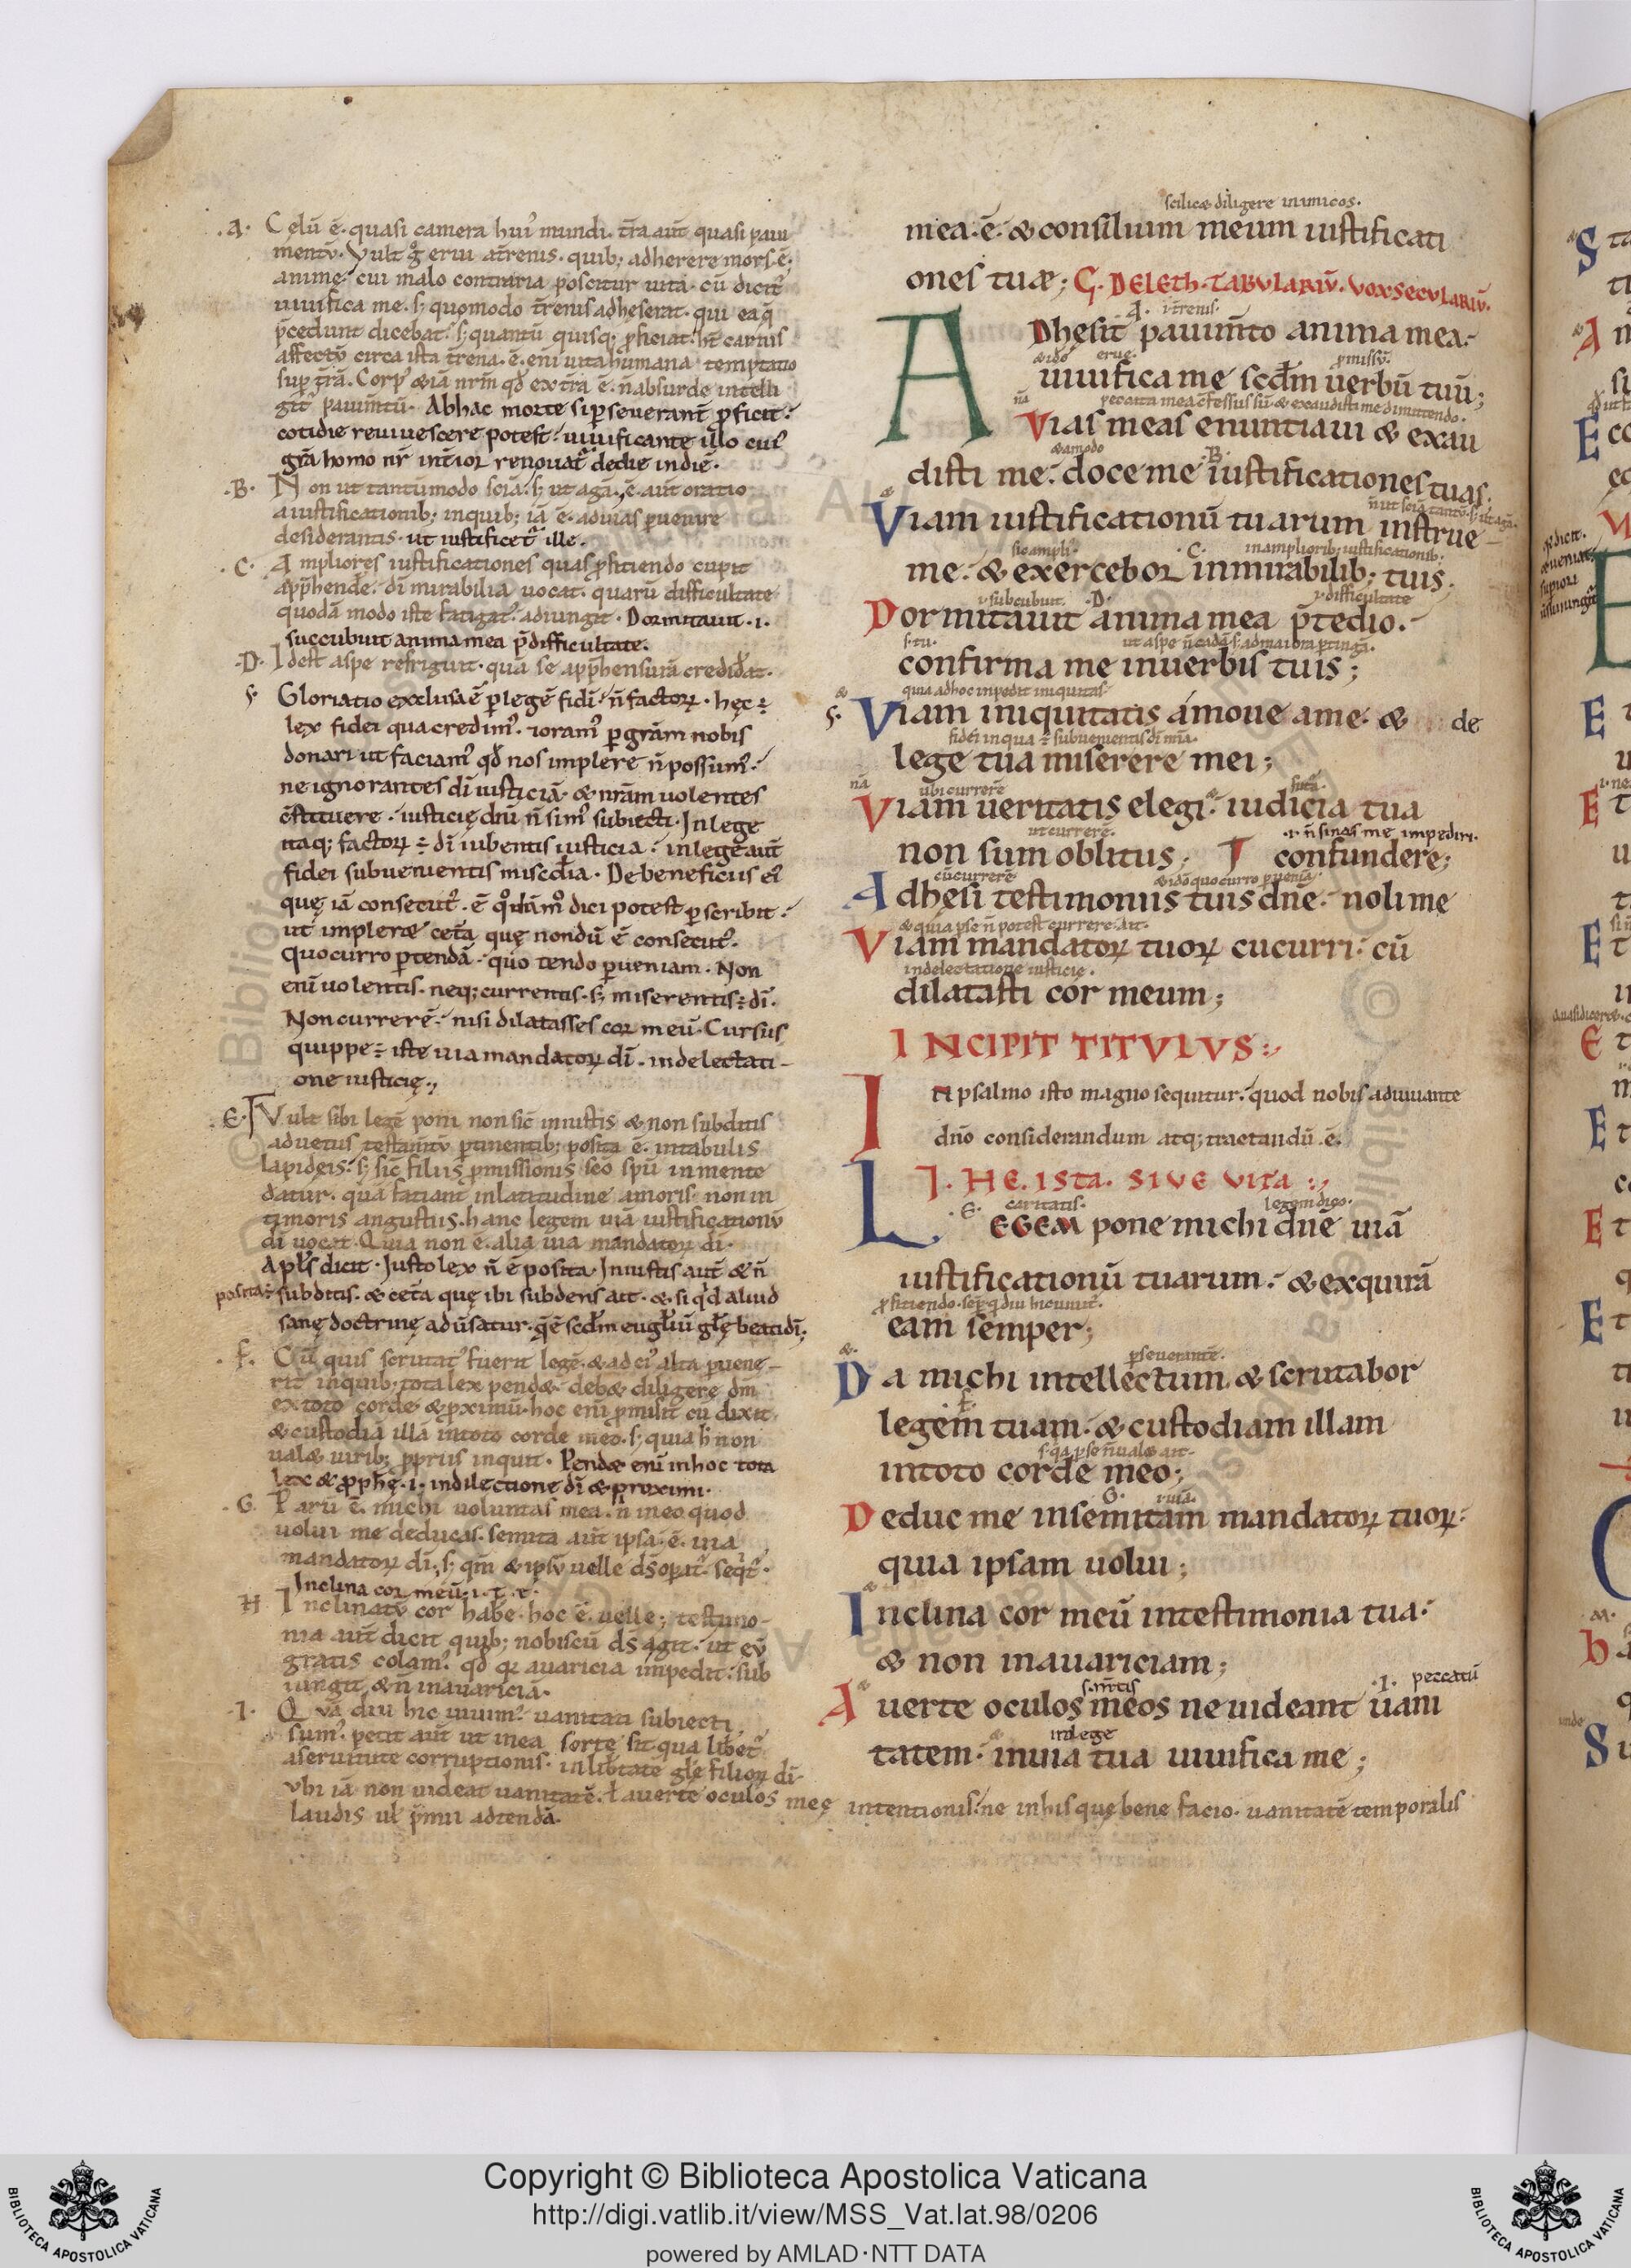 .A. Cęlū ē. quasi camera hui' mundi. t̄ra aūt quasi paui
mentū. Vult g̊ erui at̄renis. quib; adherere mors. ē.
animę. cui malo contraria poscitur uita. cū dicit'
uiuifica me. s; quomodo t̄renis adheserat. qui ea q̄
p̄cedunt dicebat. s; quantū quisq; ꝓficiat. h̄t carnis
affectū circa ista t̄rena. ē. eni uita humana temptatio
sup t̄rā. Corp' & iā nr̄m qd̄ ex t̄ra ē. n̄ absurde intelli
git' pauim̄tū. Ab hac morte si pseuerant ꝓficit.
cotidie reuiuescere potest. uiuificante illo cui'
gr̄a homo nr̄ int̄ior renouat' de die in diē.
.B. Non ut tantūmodo sciā. s; ut agā. ē aūt oratio
a iustificationib; in quib; iā ē. ad uias puenire
desiderantis. ut iustificet' ille.
.C. Ampliores iustificationes quas ꝓfitiendo cupit
app̄hende. dī mirabilia uocat. quarū difficultate
quodā modo iste fatigat'. adiungit. Dormitauit. i.
succubuit anima mea p̄ difficultate.
.D. Idest aspe refriguit. qua se app̄hensurā crediderat.
S. Gloriatio exclusa ē p legē fidi. n̄ factorꝝ. hęc ÷
lex fidei qua credim'. & oram' p grām nobis
donari ut faciam' qd̄ nos implere n̄ possum'.
ne ignorantes dī iusticiā & nrām uolentes
c̄stituere. iusticię dn̄i n̄ sim' subiecti. In lege
itaq; factorꝝ ÷ dī iubentis iusticia. in lege aūt
fidei subuenientis misc̄dia. De beneficiis ei'
quę iā consecut'. ē
ut impleræ cet̄a quę nondū ē consecut'.
quo curro ptendā. quo tendo pueniam. Non
enī uolentis. neq; currentis. s; miserentis ÷ dī.
Non currerē. nisi dilatasses cor meū. Cursus
quippe ÷ iste uia mandatorꝝ dī. in delectati-
one iusticię.,
.E. Vult sibi legē poni non sic̄ iniustis & non subditis
ad uetus testam̄tū ptinentib; posita ē. in tabulis
lapidęis. s; sic̄ filiis ꝓmissionis sc̄o spū in mente
datur. quā fatiant in latitudine amoris. non in
timoris angustiis. hanc legem uiā iustificationū
dī uocat. Quia non ē. alia uia mandatorꝝ dī.
Apl̄s dicit. Iusto lex n̄ ē posita. Iniustis aūt & n̄
posita ÷ subditis. & cet̄a quę ibi subdens ait. & si qd̄ aliud
sanę doctrinę aduersatur. q̄ ē scd̄m eugl̄iū gl̄ę beati dī;
.F. Cū quis scrutat' fuerit legē. & ad ei' alta puene-
rit in quib; tota lex pendæ. debæ diligere dm̄
ex toto corde & ꝓximū. hoc enī ꝓmisit cū dixit
& custodiā illā in toto corde meo. s; quia h̄ non
ualæ uirib; ꝓpriis inquit. Pendæ enī in hoc tota
lex & ꝓph̄ę. i. in dilectione dī & proximi.
.G. Parū ē. michi uoluntas mea. n̄ in eo quod
uolui me deducas. semita aūt ipsa. ē. uia
mandatorꝝ dī. s; qm̄ & ipsū uelle ds̄ opatʼ. seqt'.
Inclina cor meū. i. t. &.
.H. Inclinatū cor habe. hoc ē. uelle; testimo-
nia aūt dicit quib; nobiscū ds̄ agit. ut eū
gratis colam'. qd̄ qꝛ auaricia impedit. sub
iungit. & n̄ in auariciā.
.I. Quā diu hic uiuim' uanitati subiecti
sum'. petit aūt ut in ea sorte sit qua libet'
a seruitute corruptionis. in lib̄tatē gl̄ę filiorꝝ dī.
ubi iā non uideat uanitatē. ł auerte oculos meę intentionis. ne in his quę bene facio. uanitatē temporalis
laudis uel p̄mii adtendā.
scilicæ diligere inimicos.
mea. ē. & consilium meum iustificati
ones tuæ; G. DELETH. TABVLARIV̄. VOX SECVLARIV̄.
A. i. t̄renis.
ADhęsit pauim̄to anima mea.
& ideo erue. ꝓmissū.
uiuifica me scd̄m uerbū tuū;
nā peccata mea c̄fessus sū & exaudisti me dimittendo.
Vias meas enuntiaui & exau
& amodo .B.
disti me. doce me iustificationes tuas.
& n̄ ut sciā tantū. s; ut agā.
Viam iustificationū tuarum instrue
sic ampli' .C. in ampliorib; iustificationib;
me. & exercebor in mirabilib; tuis.
i. subcubuit. .D. i. difficultate
Dormitauit anima mea p̄ tedio.
s. tu. ut a spe n̄ cadā. s; ad maiora ptingā.
confirma me in uerbis tuis;
& quia adhoc inpedit iniquitas
S. Viam iniquitatis amoue a me. & de
fidei in qua ÷ subuenientis dī mīa.
lege tua miserere mei;
nā ubi currerē &
Viam ueritatis elegi. iudicia tua
ut currerē. .i. n̄ sinas me impediri.
non sum oblitus; confundere;
cū currerē & idō quo curro pueniā.
Adhęsi testimoniis tuis dn̄e. noli me
& quia p se n̄ potest currere. ait.
Viam mandatorꝝ tuorꝝ cucurri. cū
in delectatione iusticię.
dilatasti cor meum;
INCIPIT TITVLVS:,
In psalmo isto magno sequitur. quod nobis adiuuante
dn̄o considerandum atq; tractandū. ē.
HE. ISTA. SIVE VITA:,
.E. caritatis. legem dico.
LEGEM pone michi dn̄e uiā
iustificationū tuarum. & exquirā
ꝓfitiendo. semp q̄diu hic uiuit'.
eam semper;
&. pseuerantē.
Da michi intellectum & scrutabor
.F.
legem tuam. & custodiam illam
s. qa p se n̄ ualæ ait.
in toto corde meo;
.G. i. uiā.
Deduc me in semitam mandatorꝝ tuorꝝ.
quia ipsam uolui;
&
Inclina cor meū in testimonia tua.
& non in auariciam;
& s. m̄tis .I. peccatū
Auerte oculos meos ne uideant uani
& in lege
tatem. in uia tua uiuifica me;
Copyright © Biblioteca Apostolica Vaticana
http://digi.vatlib.it/view/MSS_Vat.lat.98/0206
powered by AMLAD·NTT DATA
BIBLIOTECA APOSTOLICA VATICANA
BIBLIOTECA APOSTOLICA VATICANA